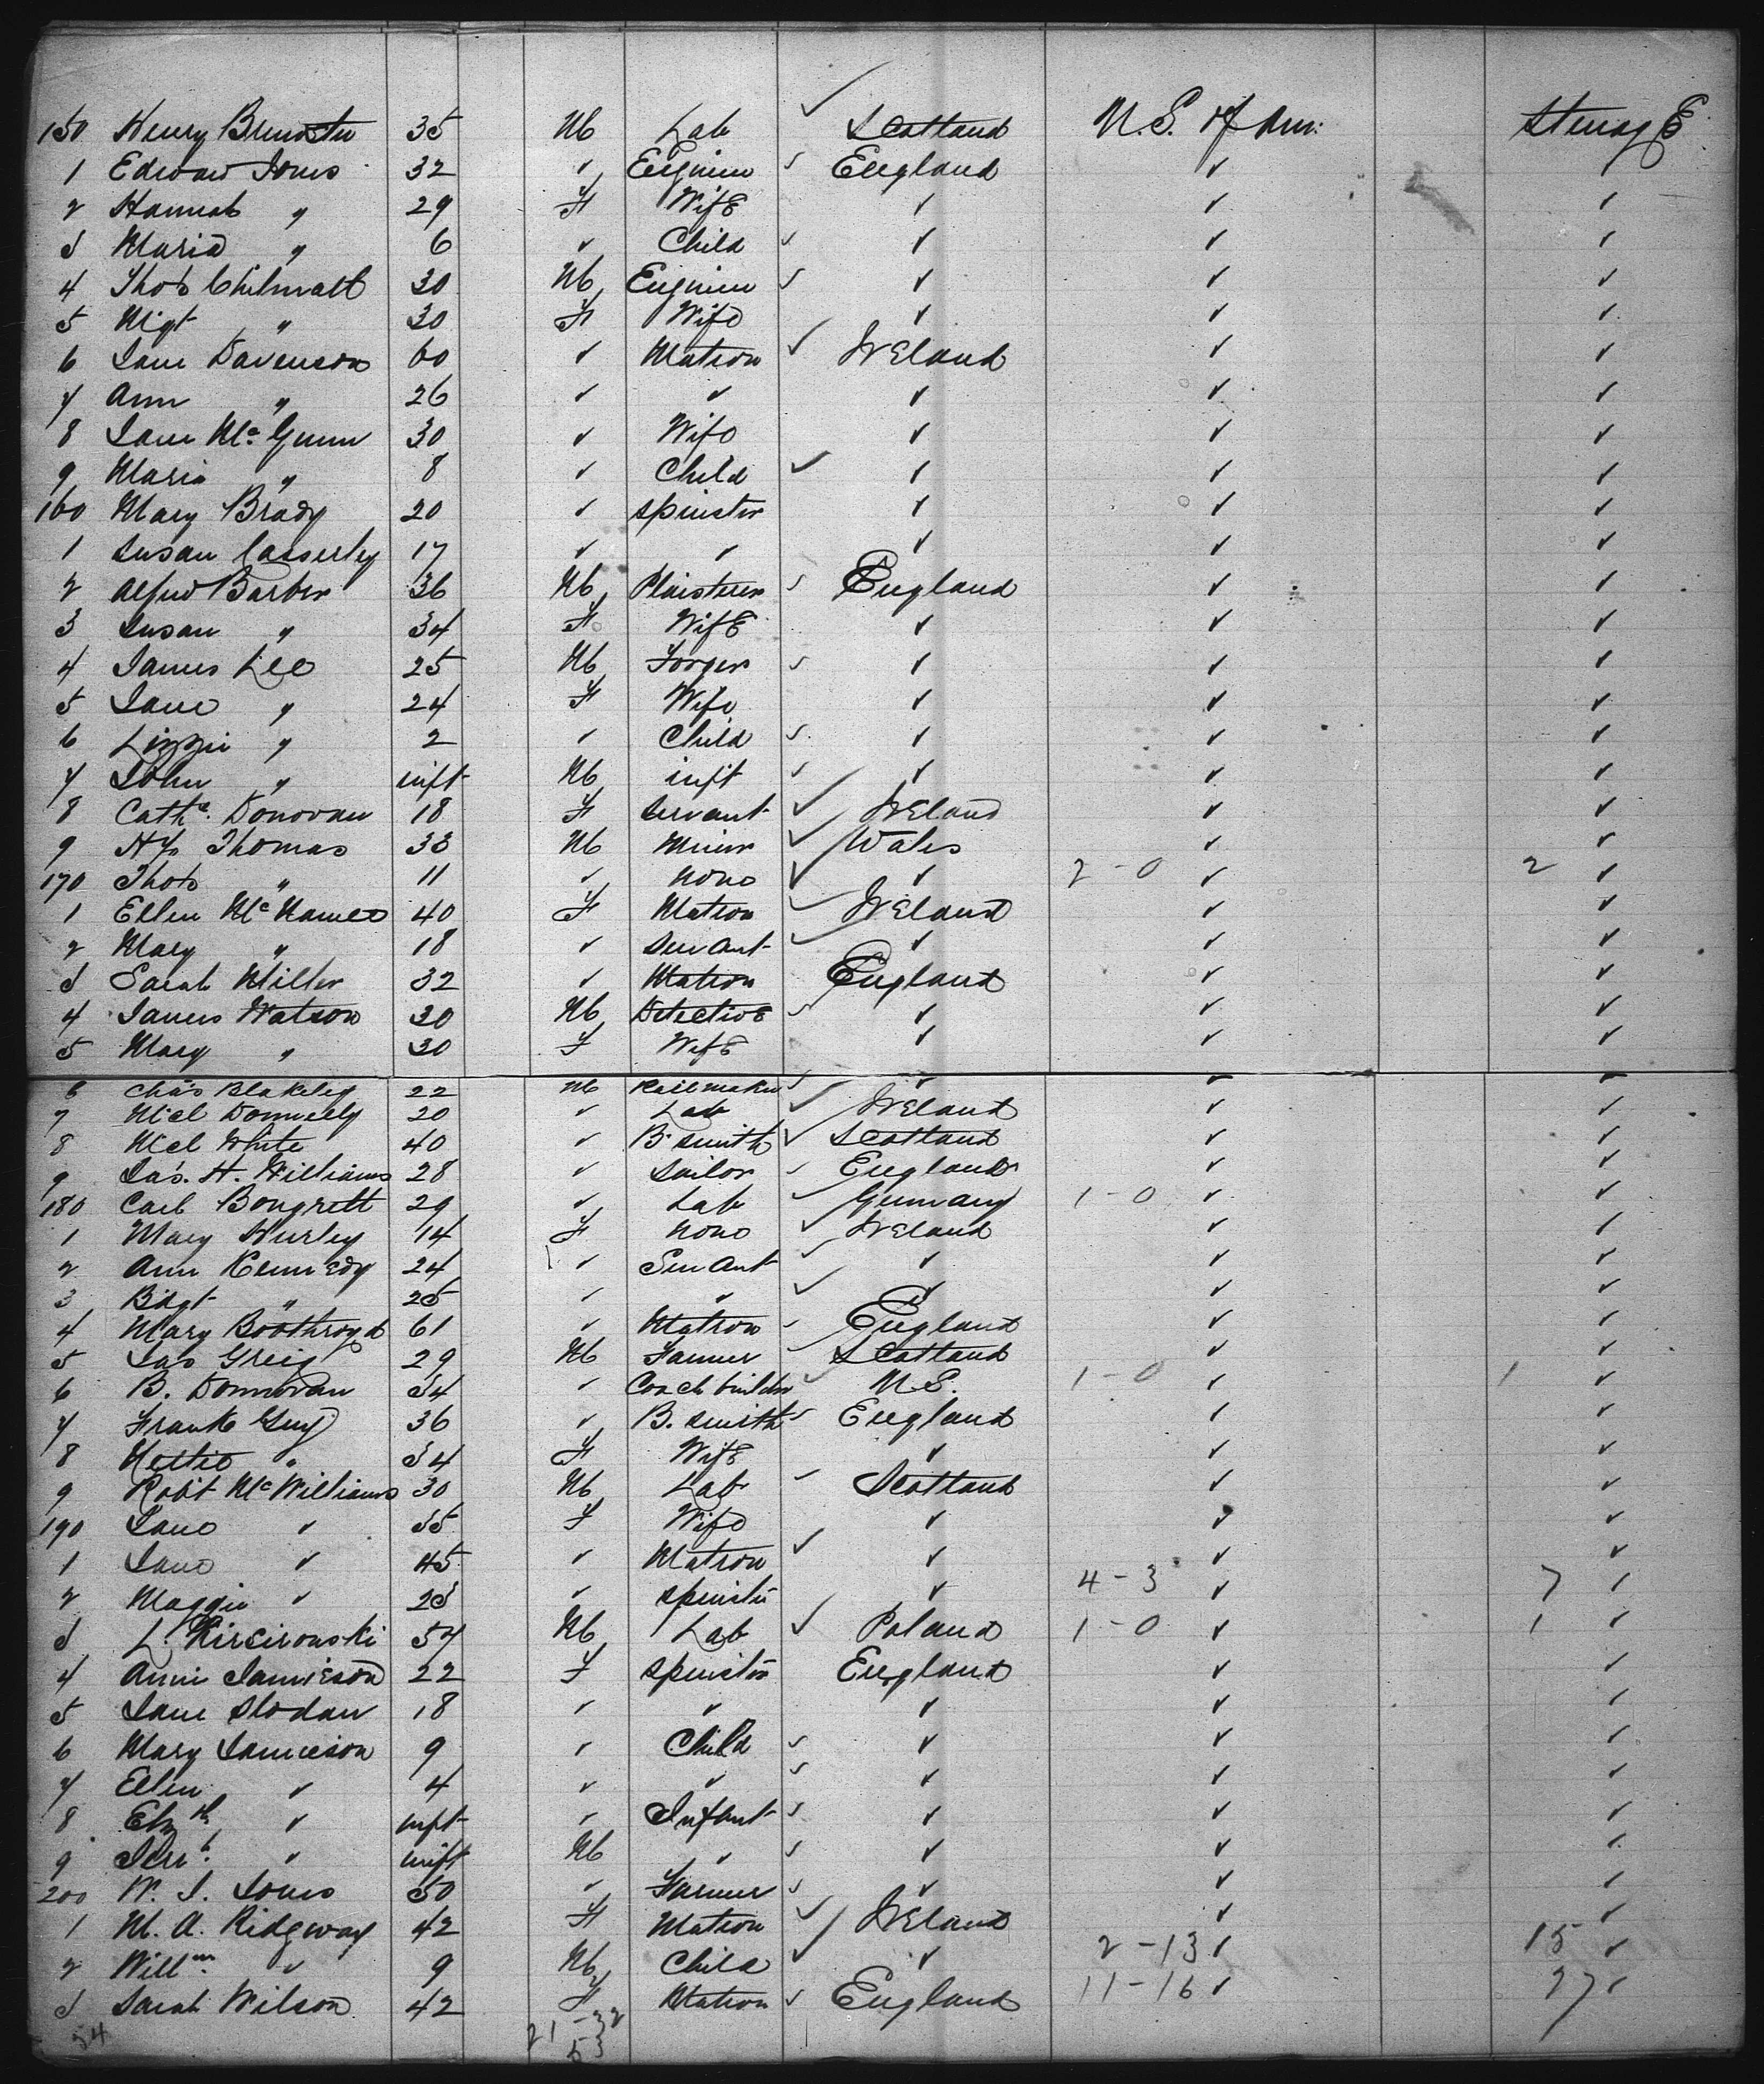 150 Henry 35 M Lab ✓ Scotland U.S. of Am: Steerage
1 Edward Jones 32 ✓ Engineer ✓ England ✓ ✓
2 Hannah " 29 F Wife ✓ ✓ ✓
3 Maria " 6 ✓ Child ✓ ✓ ✓ ✓
4 Thos 30 M Engineer ✓ ✓ ✓ ✓
5 Mgt " 30 F Wife ✓ ✓ ✓
6 Jane Davenson 60 ✓ Matron ✓ Ireland ✓ ✓
7 Ann " 26 ✓ ✓ ✓ ✓ ✓
8 Jane Mc Gunn 30 ✓ Wife ✓ ✓ ✓
9 Maria " 8 ✓ Child ✓ ✓ ✓ ✓
160 Mary Brady 20 ✓ Spinster ✓ ✓ ✓
1 Susan Casserley 17 ✓ ✓ ✓ ✓ ✓
2 Alfred Barber 36 M Plaisterer ✓ England ✓ ✓
3 Susan " 34 F Wife ✓ ✓ ✓
4 James Lee 25 M Forger ✓ ✓ ✓ ✓
5 Jane " 24 F Wife ✓ ✓ ✓
6 Lizzie " 2 ✓ Child ✓ ✓ ✓ ✓
7 John " inft M inft ✓ ✓ ✓ ✓
8 Cathe. Donovan 18 F Servant ✓ Ireland ✓ ✓
9 Hy Thomas 33 M Miner ✓ Wales ✓ ✓
170 Thos " 11 ✓ None ✓ ✓ 2-0 ✓ 2 ✓
1 Ellen Mc Namee 40 F Matron ✓ Ireland ✓ ✓
2 Mary " 18 ✓ Servant ✓ ✓ ✓ ✓
3 Sarah Miller 32 ✓ Matron England ✓ ✓
4 James Watson 30 M Detective ✓ ✓ ✓ ✓
5 Mary " 30 F Wife ✓ ✓ ✓
6 Chas Blakeley 22 M ✓ ✓ ✓ ✓
7 Micl Donnelly 20 ✓ Lab ✓ Ireland ✓ ✓
8 Micl White 40 ✓ B. Smith ✓ Scotland ✓ ✓
9 Jas. H. Williams 28 ✓ Sailor ✓ England ✓ ✓
180 Carl Bongrett 29 ✓ Lab ✓ Germany 1-0 ✓ ✓
1 Mary Hurley 14 F None ✓ Ireland ✓ ✓
2 Ann Kennedy 24 ✓ Servant ✓ ✓ ✓ ✓
3 Bdgt " 25 ✓ " ✓ ✓ ✓ ✓
4 Mary Boothroyd 61 ✓ Matron ✓ England ✓ ✓
5 Jas Greig 29 M Farmer ✓ Scotland ✓ ✓
6 B. Donnovan 34 ✓ Coach builder ✓ U.S. 1-0 ✓ 1 ✓
7 Frank Guy 36 ✓ B. Smith ✓ England ✓ ✓
8 " 34 F Wife ✓ ✓ ✓
9 Robt Mc Williams 30 M Lab ✓ Scotland ✓ ✓
190 Jane ✓ 35 F Wife ✓ ✓ ✓
1 Jane ✓ 45 ✓ Matron ✓ ✓ ✓ ✓
2 Maggie ✓ 23 ✓ Spinster ✓ 4-3 ✓ 7 ✓
3 L. 37 M Lab ✓ Poland 1-0 ✓ 1 ✓
4 Annie Jamieson 22 F Spinster England ✓ ✓
5 Jane Slodan 18 ✓ ✓ ✓ ✓ ✓
6 Mary Jamieson 9 ✓ Child ✓ ✓ ✓ ✓
7 Ellen ✓ 4 ✓ ✓ ✓ ✓ ✓ ✓
8 Elizth ✓ inft ✓ Infant ✓ ✓ ✓ ✓
9 ✓ inft M ✓ ✓ ✓ ✓ ✓
200 W. J. Jones 50 ✓ Farmer ✓ ✓ ✓ ✓
1 M. A. Ridgway 42 F Matron ✓ Ireland ✓ ✓
2 Willm. ✓ 9 M Child ✓ ✓ 2-13 ✓ 15 ✓
3 Sarah Wilson 42 F Matron ✓ England 11-16 ✓ 27 ✓
54 21-32
53